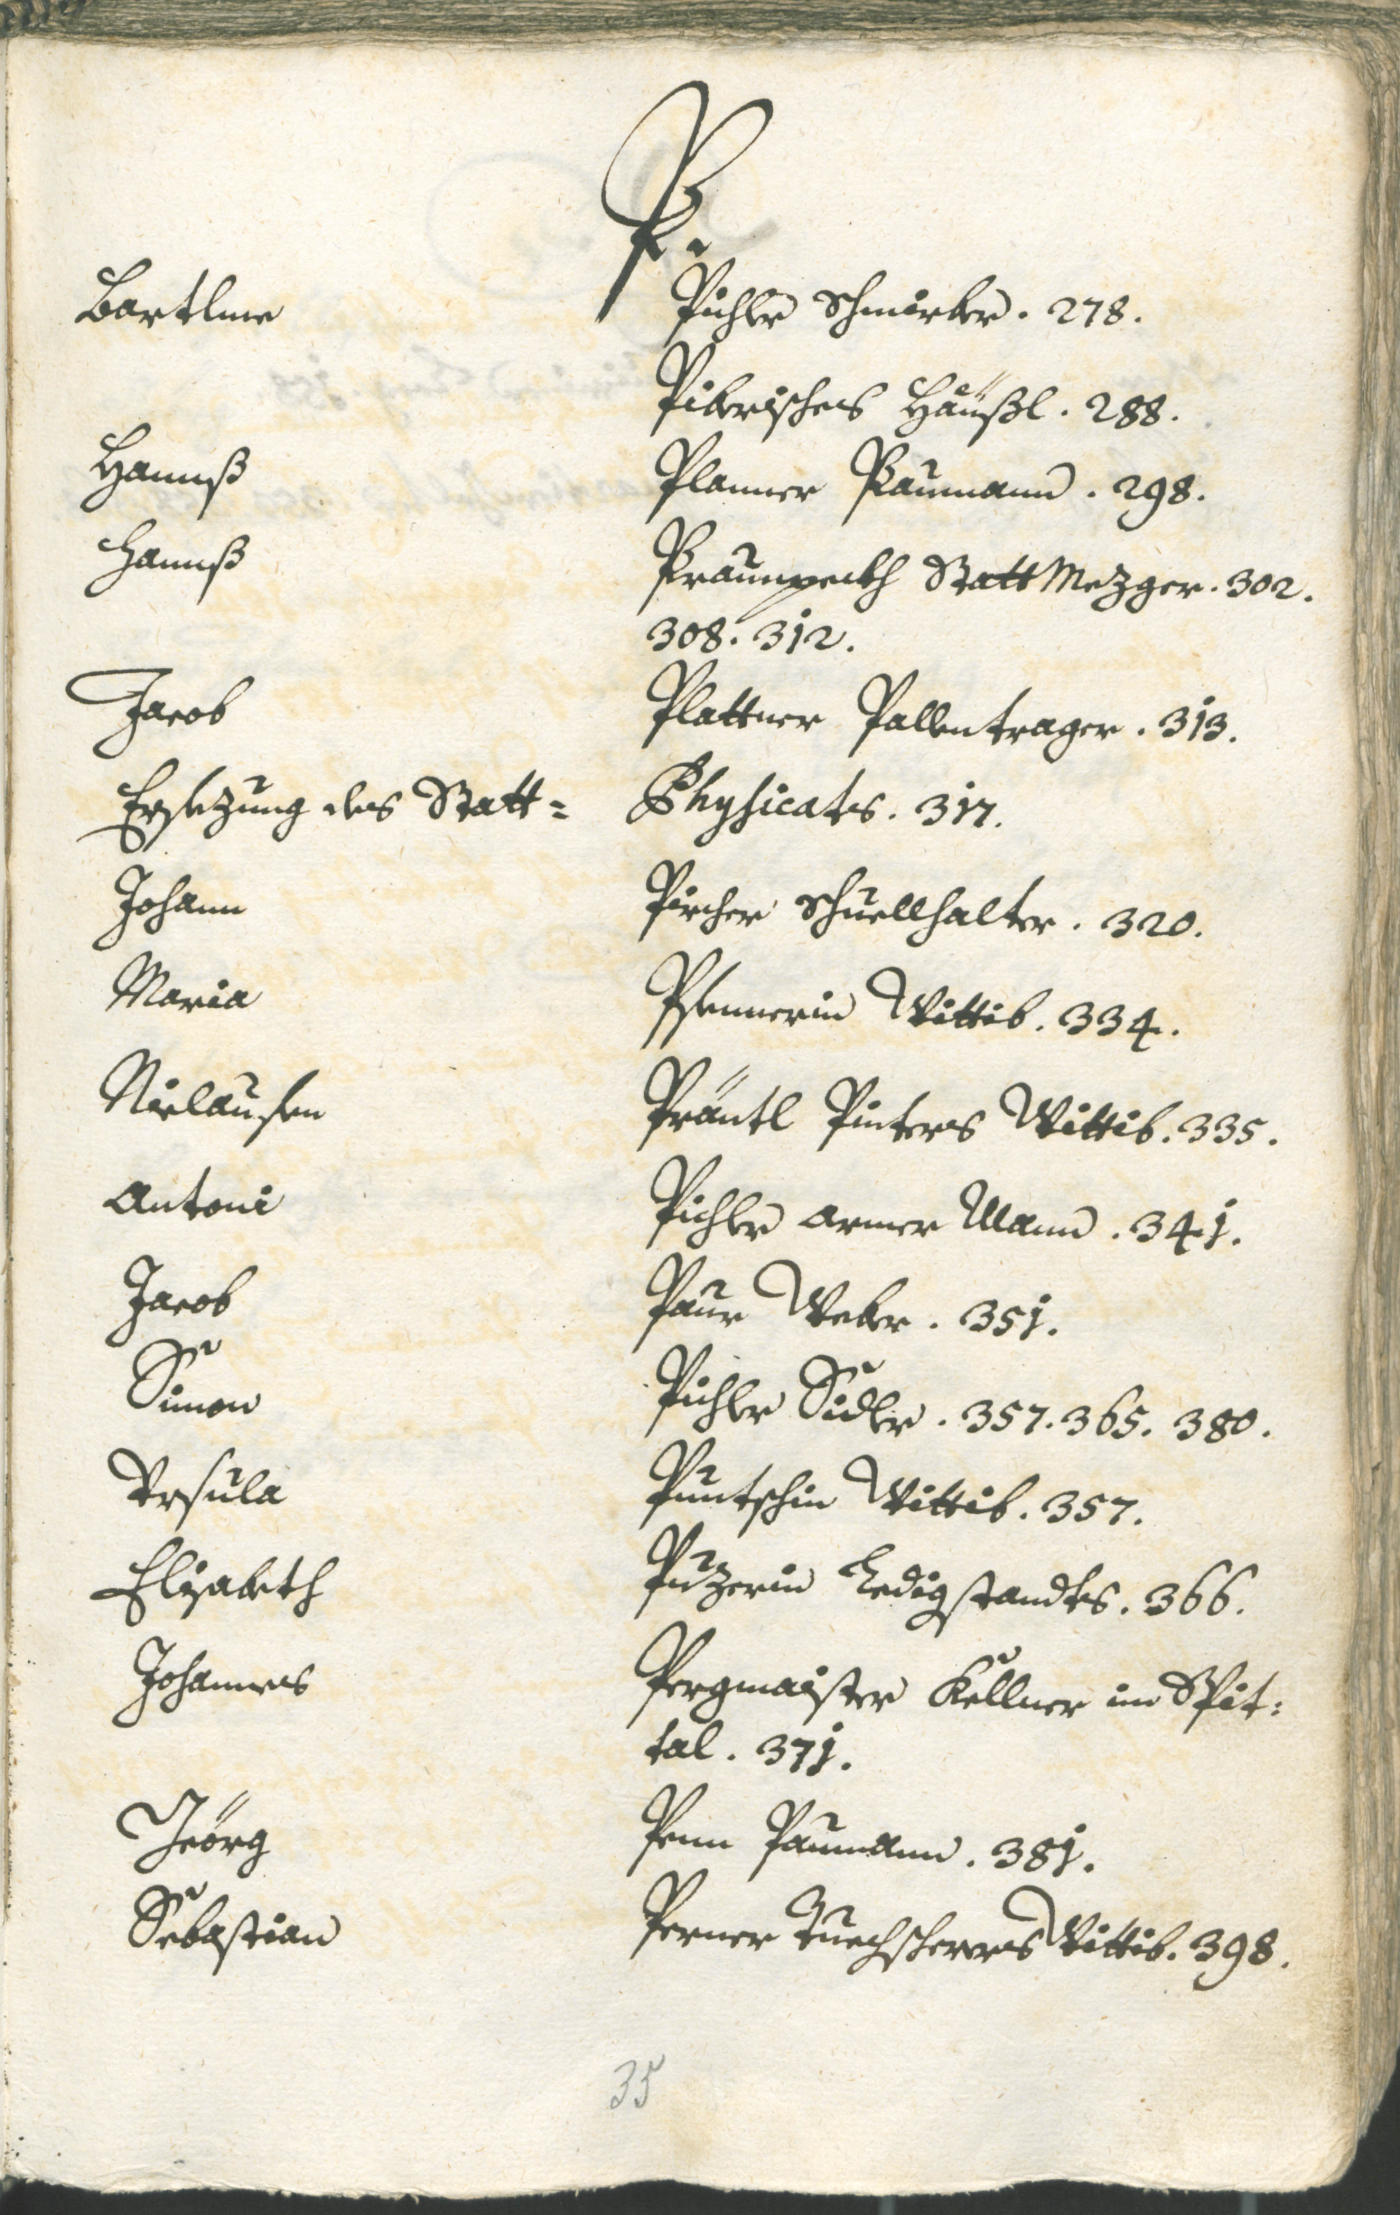 P.
Bartlme Pichler Schmirber. 278.
Piberisches Häußl. 288.
Hannß Planner Paumann. 298.
Hannß Praunpeckh Statt Mezger. 302.
308. 312.
Jacob Plattner Pallentrager. 313.
Ersezung des Statt= Physicates. 317.
Johann Pircher Schuellhalter. 320.
Maria Psennerin Wittib. 334.
Niclausen Präntl Pinters Wittib. 335.
Antoni Pichler armer Mann. 341.
Jacob Paur Weber. 351.
Simon Pichler Sidler. 357. 365. 380.
Vrsula Puntschin Wittib. 357.
Elisabeth Puzerin Ledigstandts. 366.
Johannes Pergmaister Kellner im Spit:
tal. 371.
Jeörg Penn Paumann. 381.
Sebastian Perner Tuechscherers Wittib. 398.
35